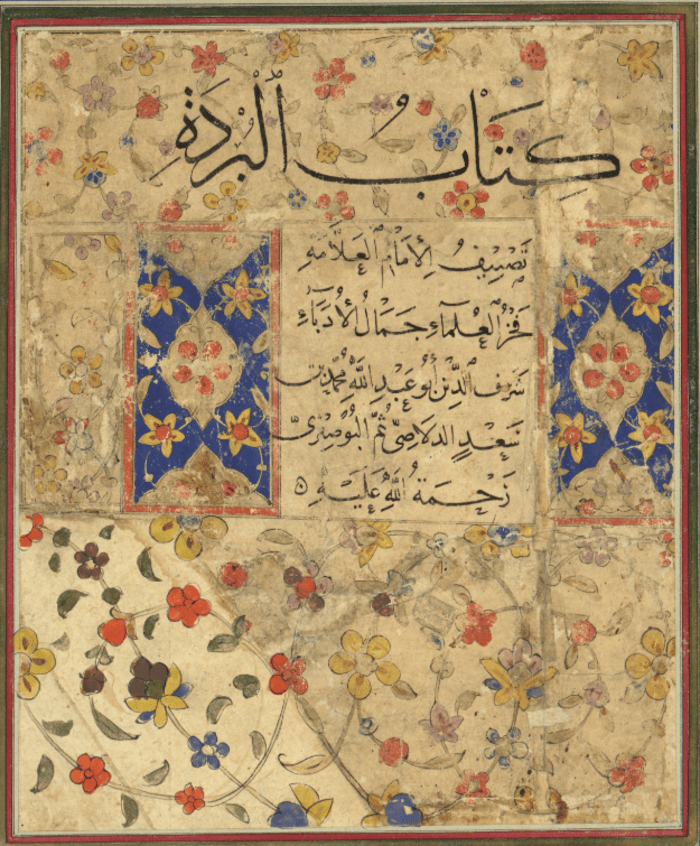 كِتَابُ الْبُرْدَةِ
تَصْنِيفُ الْإِمَامِ الْعَلَّامَةِ
فَخْرُ الْعُلَمَاءِ جَمَالُ الْأُدَبَاءِ
شَرَفُ الدِّينِ أَبُو عَبْدِ اللَّهِ مُحَمَّد بْن
سَعِيدٍ الدلاصِيّ ثُمَّ الْبُوصِيرِيّ
رَحْمَةُ اللَّهِ عَلَيْهِ